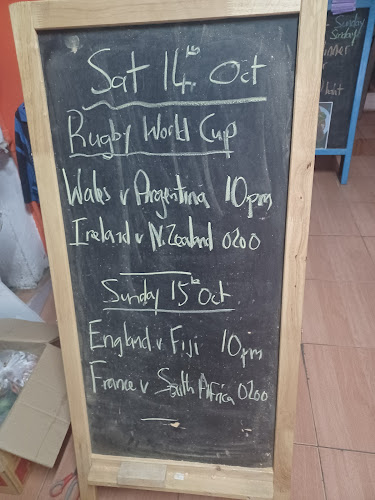 Sat 14th Oct
Rugby World Cup
Wales v Argentina 10pm
Ireland v N. Zealand 0200
Sunday 15th Oct
England v Fiji 10pm
France v South Africa 0200
Sunday